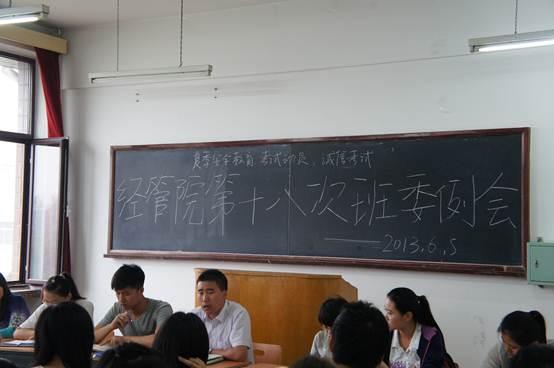 夏季安全教育 考试动员、诚信考试
经管院第十八次班委例会
——2013.6.5